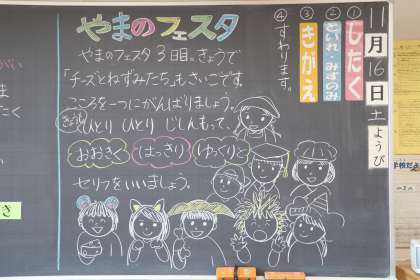 やまのフェスタ
やまのフェスタ3日目。きょうで
「チーズとねずみたち」もさいごです。
こころを一つにがんばりましょう。
ひとり ひとり じしんもって、
おおきく はっきり ゆっくりと
セリフをいいましょう。
④すわります。
③きがえ
②といれ みずのみ
①したく
11月16日土ようび